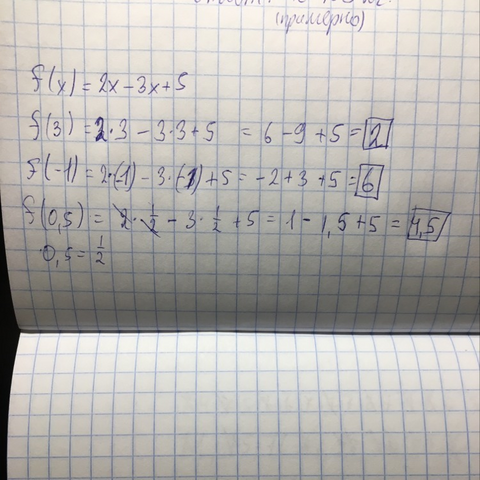 (примерно)
f(x) = 2x - 3x + 5
f(3) = 2·3 - 3·3 + 5 = 6 - 9 + 5 = 2
f(-1) = 2·(-1) - 3·(-1) + 5 = -2 + 3 + 5 = 6
f(0,5) = 2·1/2 - 3·1/2 + 5 = 1 - 1,5 + 5 = 4,5
0,5 = 1/2